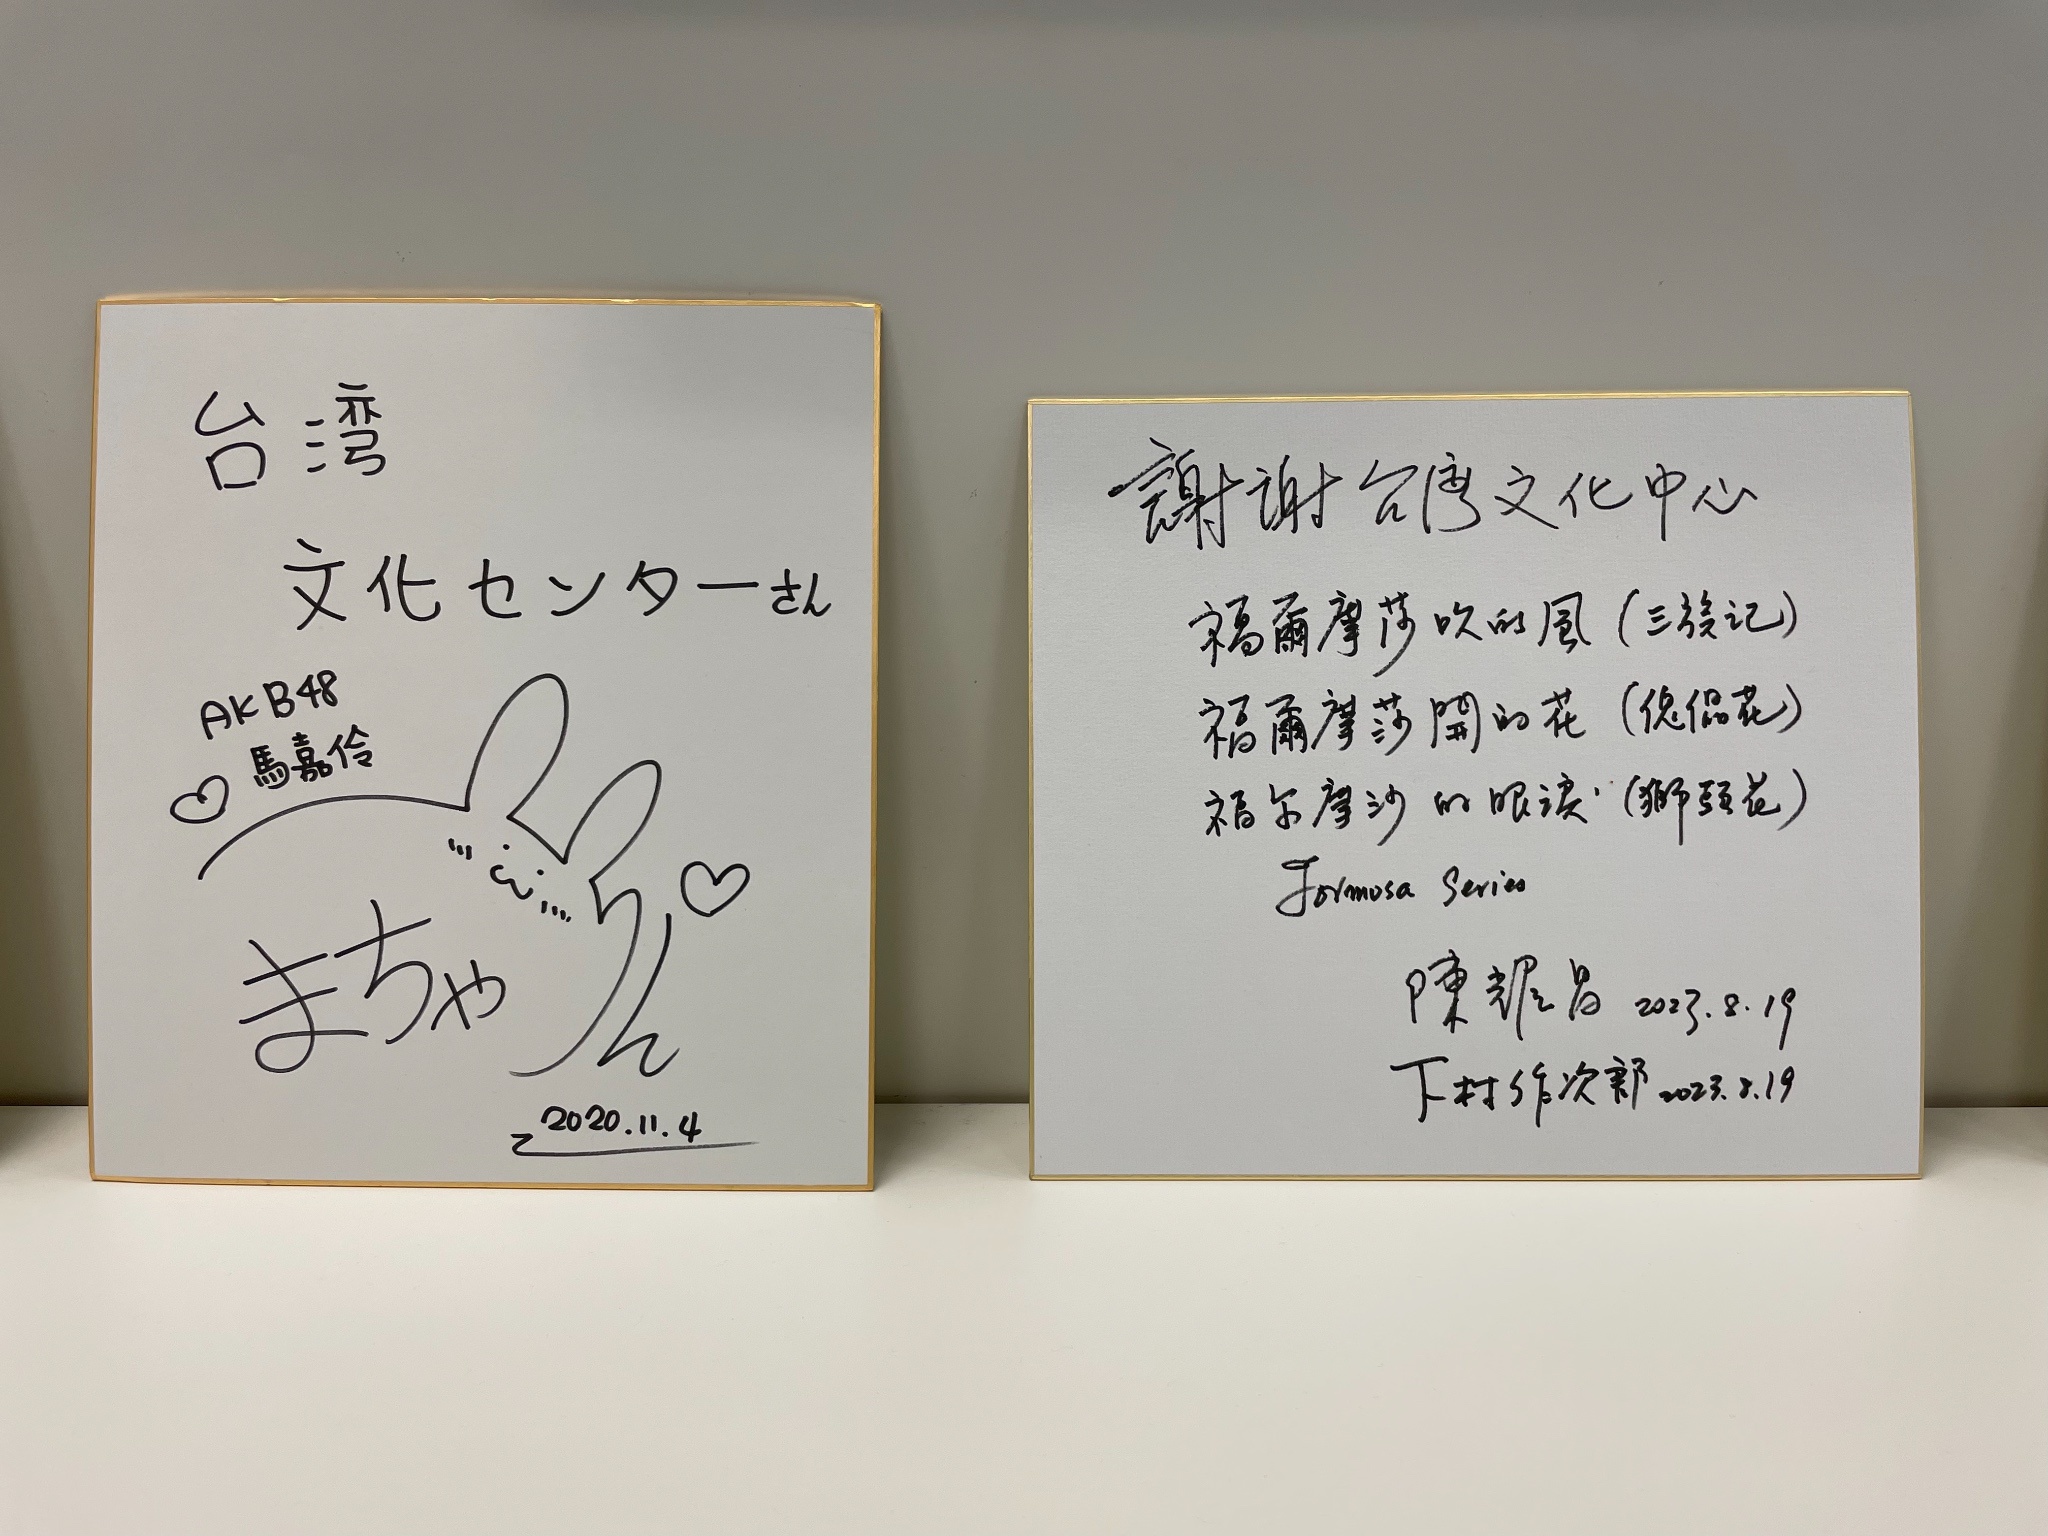 台湾
文化センターさん
AKB48
馬嘉伶
まちゃりん
2020.11.4
謝謝台湾文化中心
福爾摩莎吹的風(三族記)
福爾摩莎開的花(傀儡花)
福尔摩沙的眼淚(獅頭花)
Formosa Series
陳耀昌 2023.8.19
下村作次郎 2023.8.19